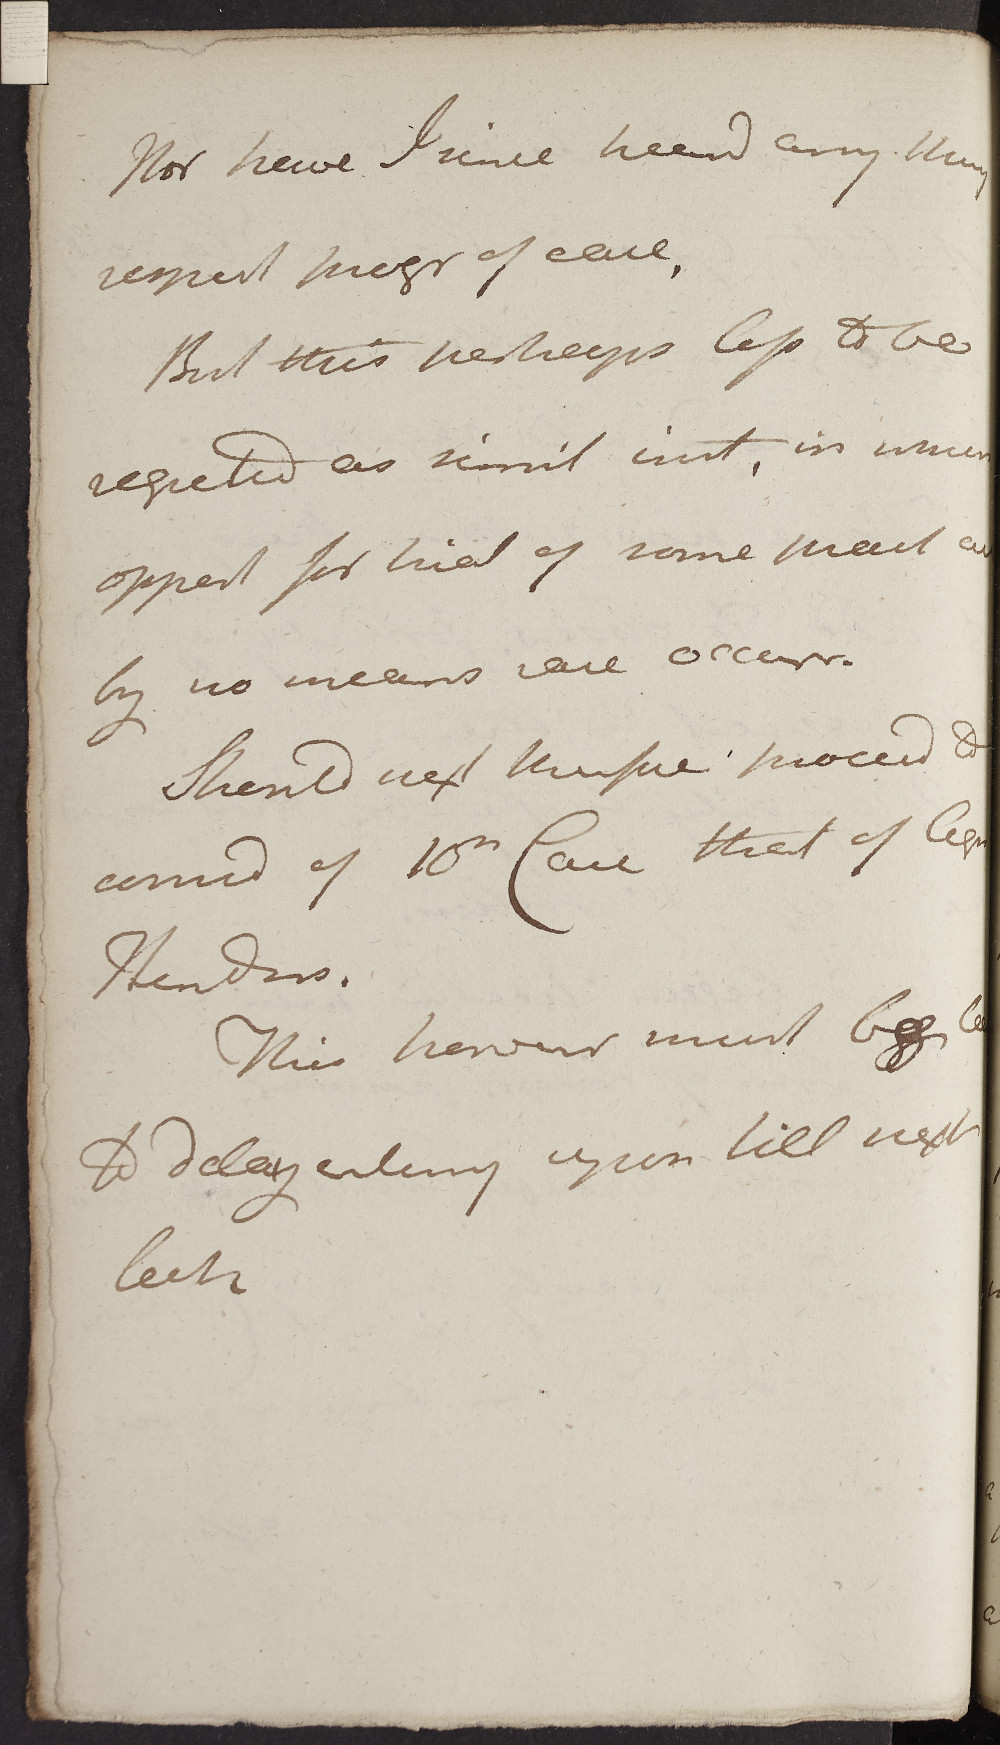 Nor have I since heard any thing
respect progr of case,
But this perhaps less to be
regreted as simil inst, in whom
opport for trial of some pract
by no means rare occurr.
Should next therefore proceed to
consid of 10th Case that of
Henders.
This howevr must beg
to delay entering upon till next
Lect